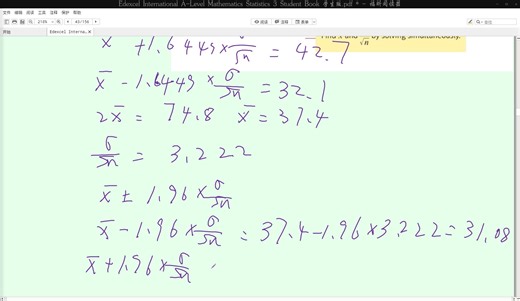 Edexcel International A-Level Mathematics Statistics 3 Student Book
Edexcel Interna...
by solving simultaneously.
√n
x̄ + 1.6449 × σ/√n = 42.7
x̄ - 1.6449 × σ/√n = 32.1
2x̄ = 74.8 x̄ = 37.4
σ/√n = 3.222
x̄ ± 1.96 × σ/√n
x̄ - 1.96 × σ/√n = 37.4 - 1.96 × 3.222 = 31.08
x̄ + 1.96 × σ/√n